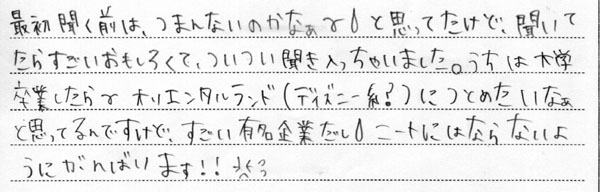 最初聞く前は、つまんないのかなぁ〜と思ってたけど、聞いて
たらすごいおもしろくて、ついつい聞き入っちゃいました。うちは大学
卒業したら〜オリエンタルランド(ディズニー系?)につとめたいなぁ
と思ってるんですけど、すごい有名企業だし ニートにはならないよ
うにがんばります!!